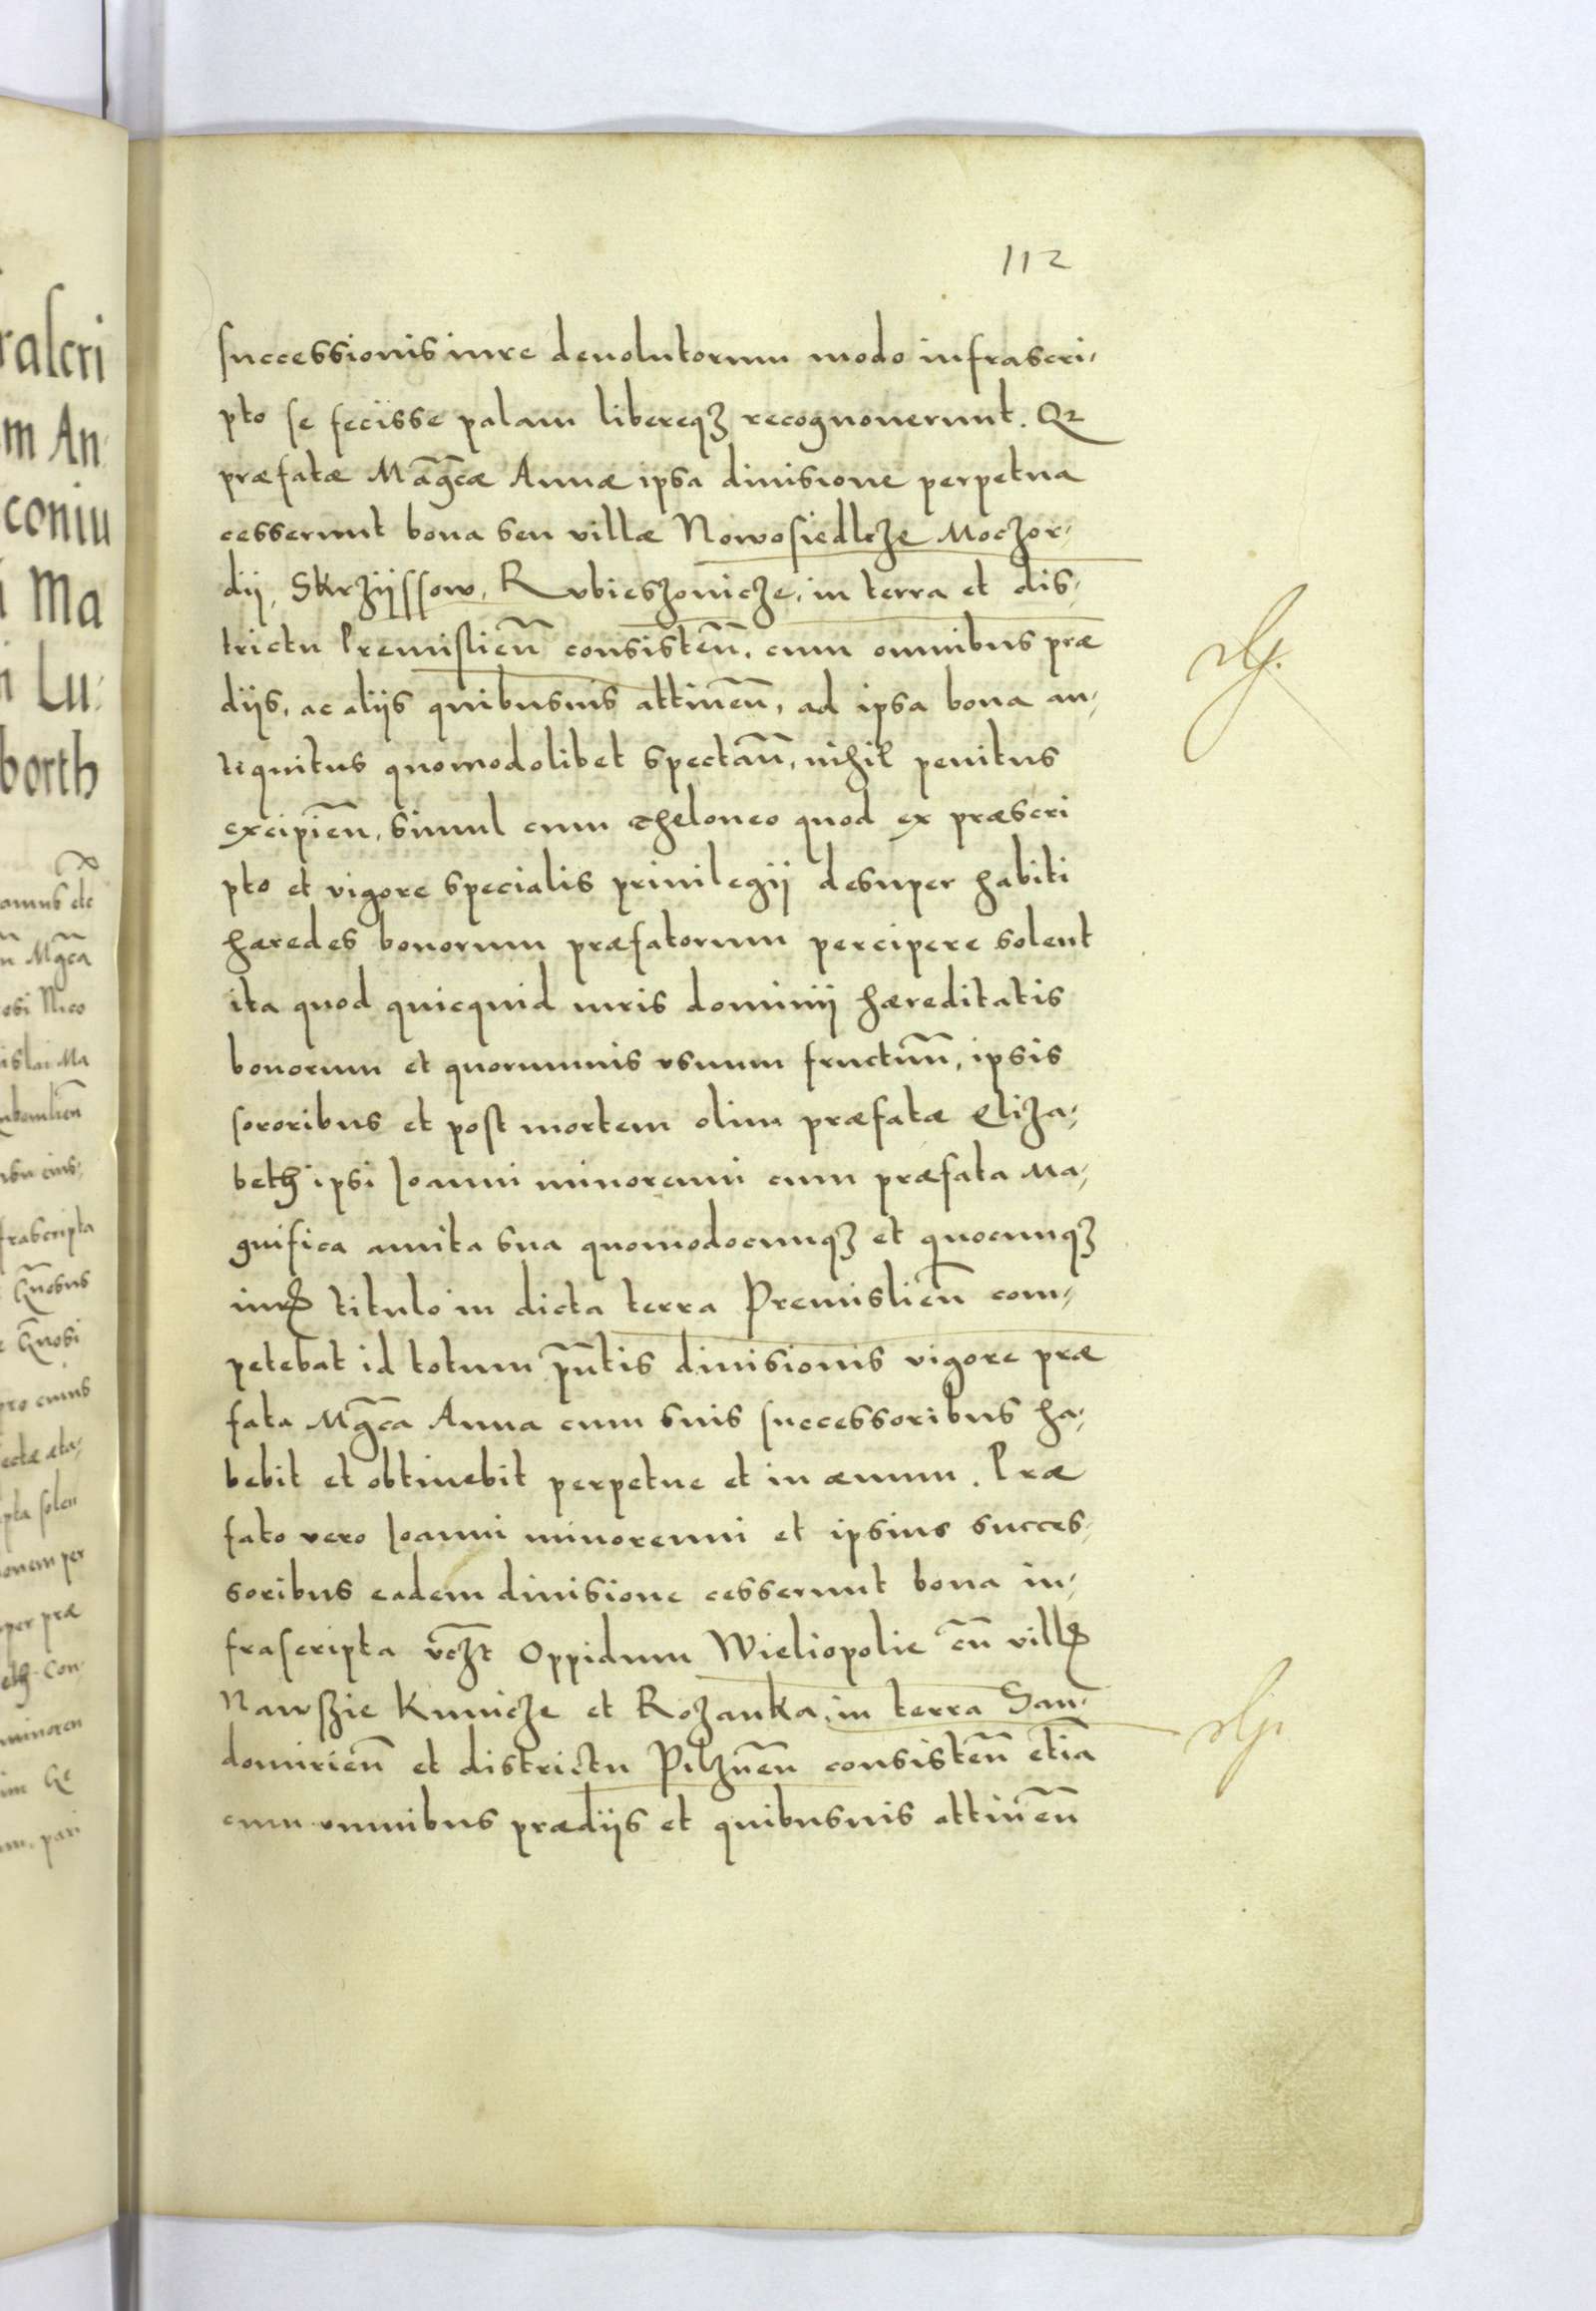 112
successionis iure deuolutorum modo infrascri-
pto se fecisse palam libereqȝ recognouerunt. Qꝛ
præfatæ Mãg̃cæ Annæ ipsa diuisione perpetua
cesserunt bona seu villæ Nowosiedlcze Moczor-
dij, Skrzijssow, Rvbieszouicze, in terra et dis-
trictu Premislien̄ consisten̄, cum omnibus præ
diis, ac aliis quibusuis attinen̄, ad ipsa bona an-
tiquitus quomodolibet spectan̄, nihil penitus
excipien̄, simul cum theloneo quod ex præscri
pto et vigore specialis priuilegij desuper habiti
hæredes bonorum præfatorum percipere solent
ita quod quicquid iuris dominij hæreditatis
bonorum et quorumuis vsuum fructuū, ipsis
sororibus et post mortem olim præfatæ Eliza-
beth ipsi Joanni minorenni cum præfata Ma-
gnifica amita sua quomodocunqȝ et quocunqȝ
iurꝭ titulo in dicta terra Premislien̄ com-
petebat id totum pñtis diuisionis vigore præ
fata Mg̃ca Anna cum suis successoribus ha-
bebit et obtinebit perpetue et in æuum. Præ
fato vero Joanni minorenni et ipsius succes-
soribus eadem diuisione cesserunt bona in-
frascripta vcꝫt Oppidum Wieliopolie cū villꝭ
Nawszie Knnicze et Rozanka, in terra San-
domirien̄ et districtu Pilznen̄ consisten̄ etiā
cum omnibus prædiis et quibusuis attinen̄
ralcri
m An
coniu
i Ma
i Lu-
borth